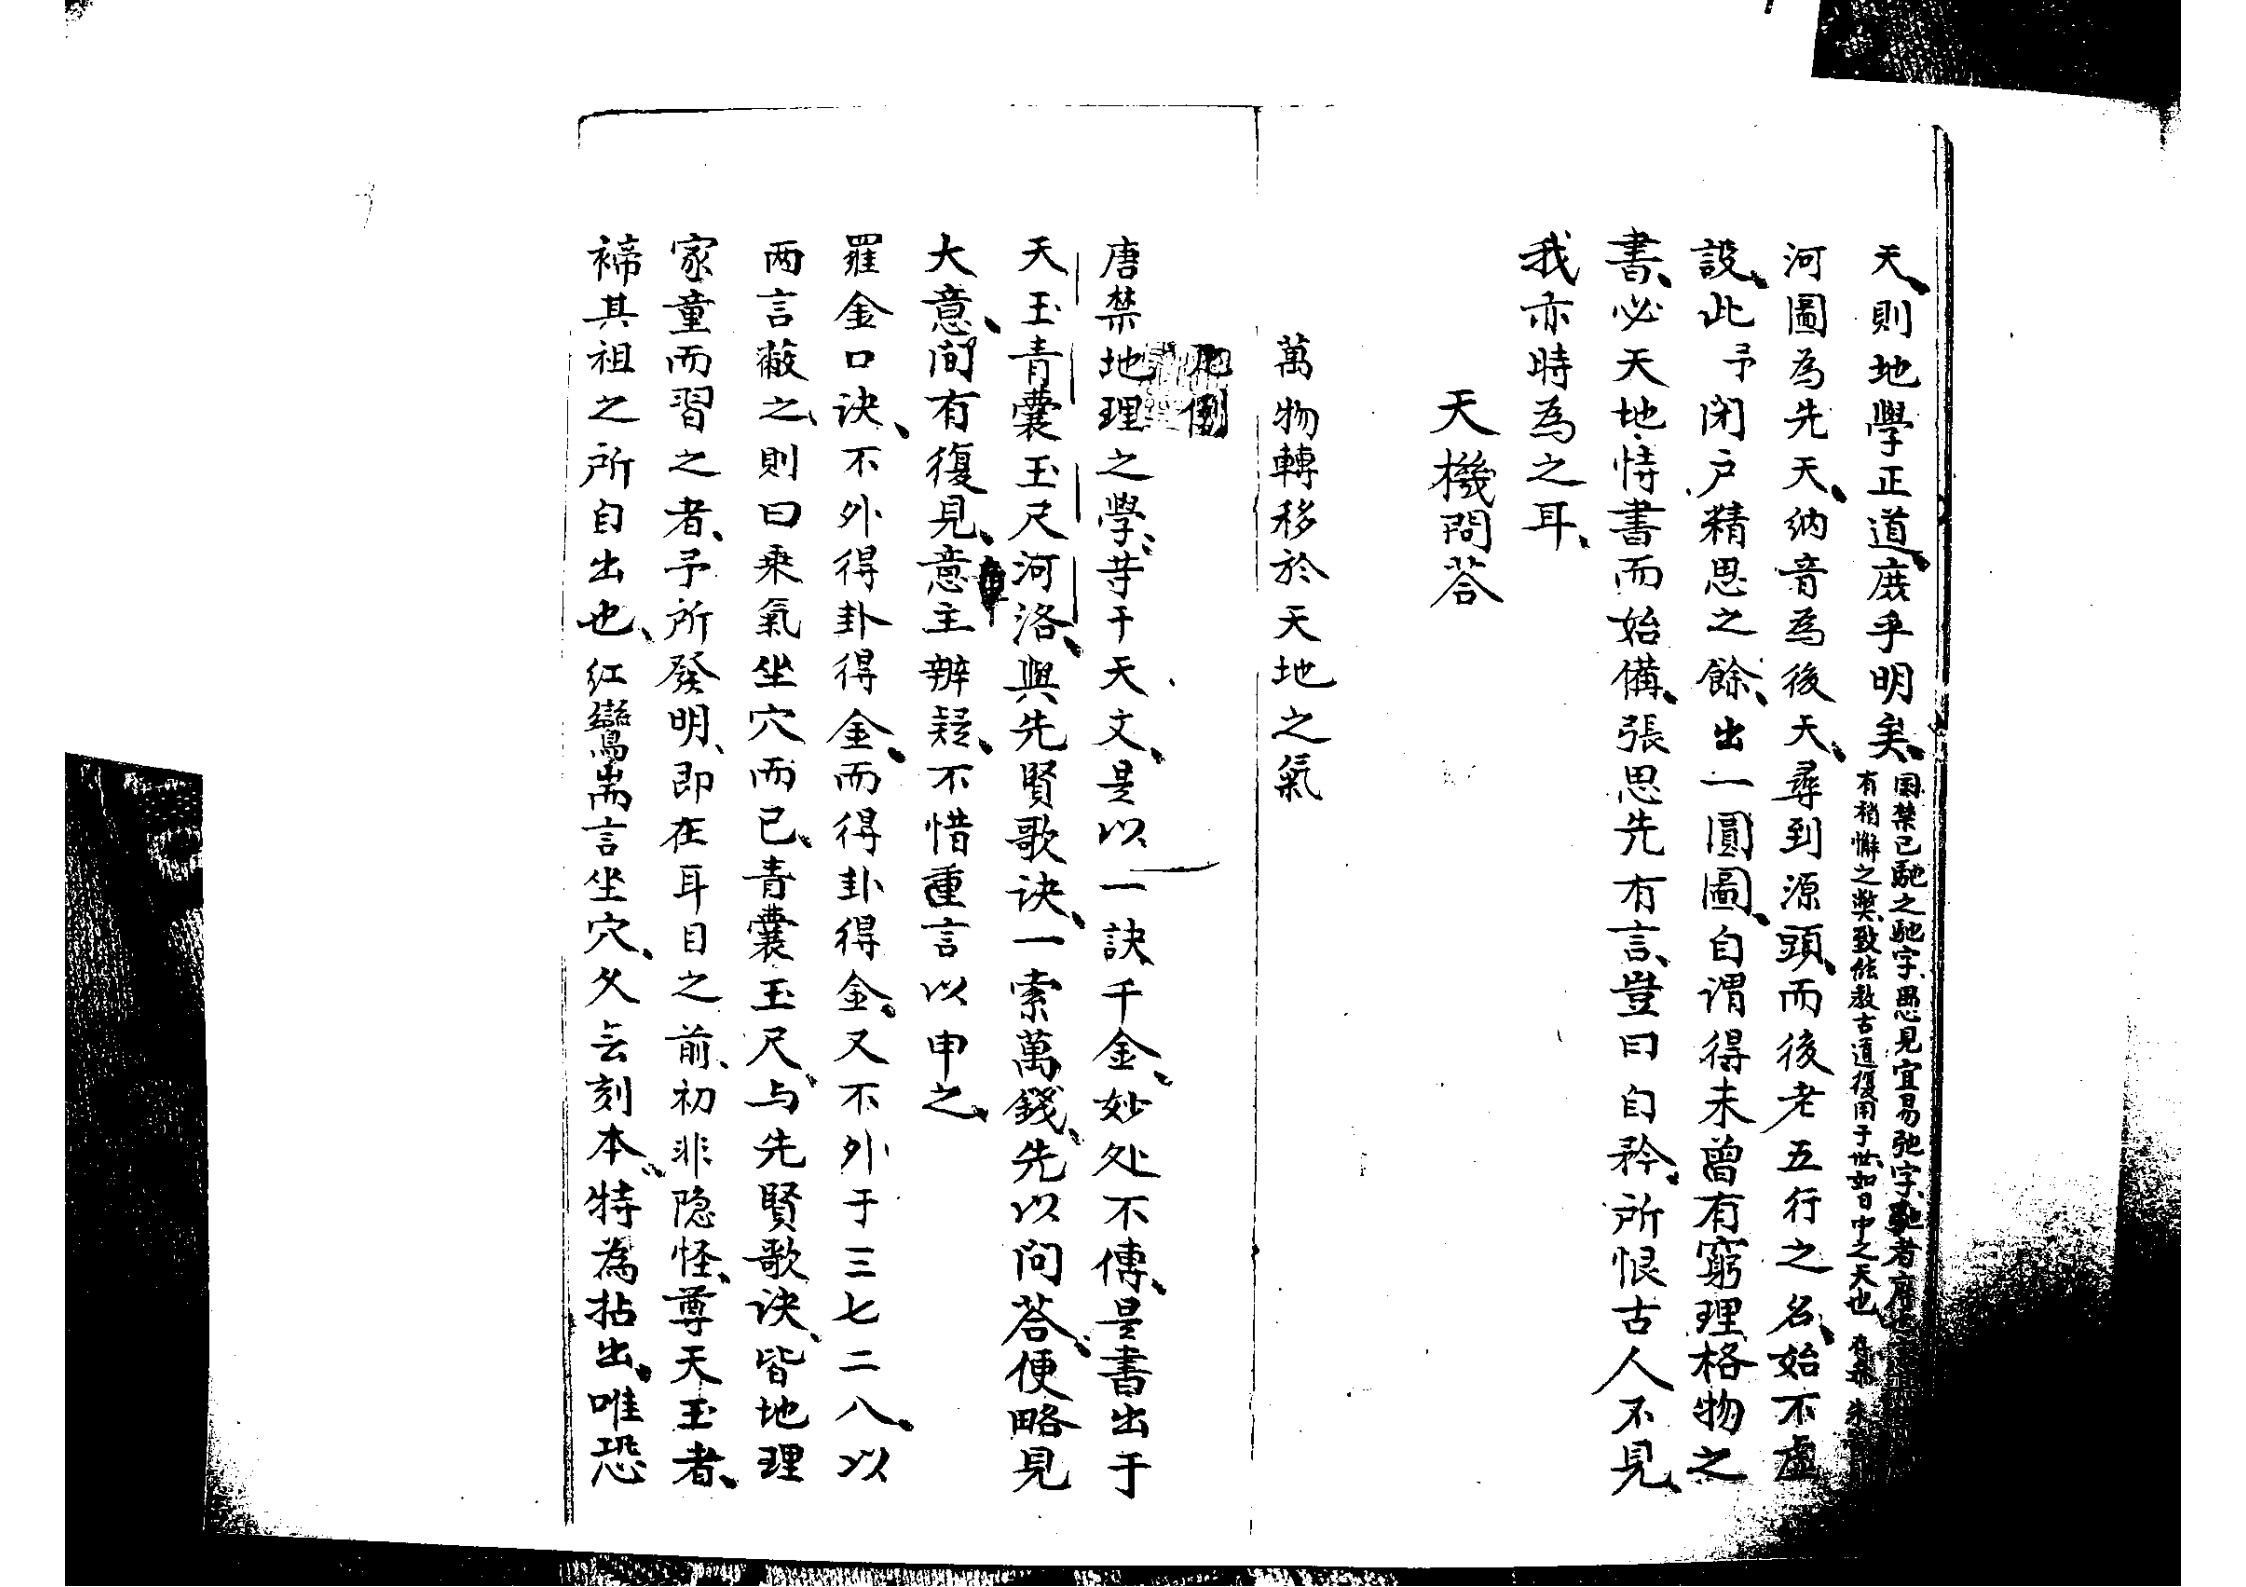 天、則地學正道、庶乎明矣、
国禁已馳之馳字、愚見宜易弛字、馳者
有稍懈之弊、致能教古道復用于世、如日中之天也
河圖為先天、納音為後天、尋到源頭、而後老五行之名、始不虛
設、此予閉户精思之餘、出一圓圖、自謂得未曾有窮理格物之
書、必天地恃書而始備、張思先有言、豈曰自矜、所恨古人不見
我亦時為之耳、
天機問荅
萬物轉移於天地之氣
唐禁地理之學、等于天文、是以一訣千金、妙处不傳、是書出于
天玉青囊玉尺河洛、與先賢歌诀、一索萬錢、先以问荅、便略見
大意、间有復見、意主辦疑、不惜重言以申之、
羅金口诀、不外得卦得金、而得卦得金、又不外于三七二八、以
两言蔽之、則曰乘氣坐穴而已、青囊玉尺、与先賢歌诀、皆地理
家童而習之者、予所發明、即在耳目之前、初非隐怪、尊天玉者、
禘其祖之所自出也、紅鸞耑言坐穴、久云刻本、特為拈出、唯恐